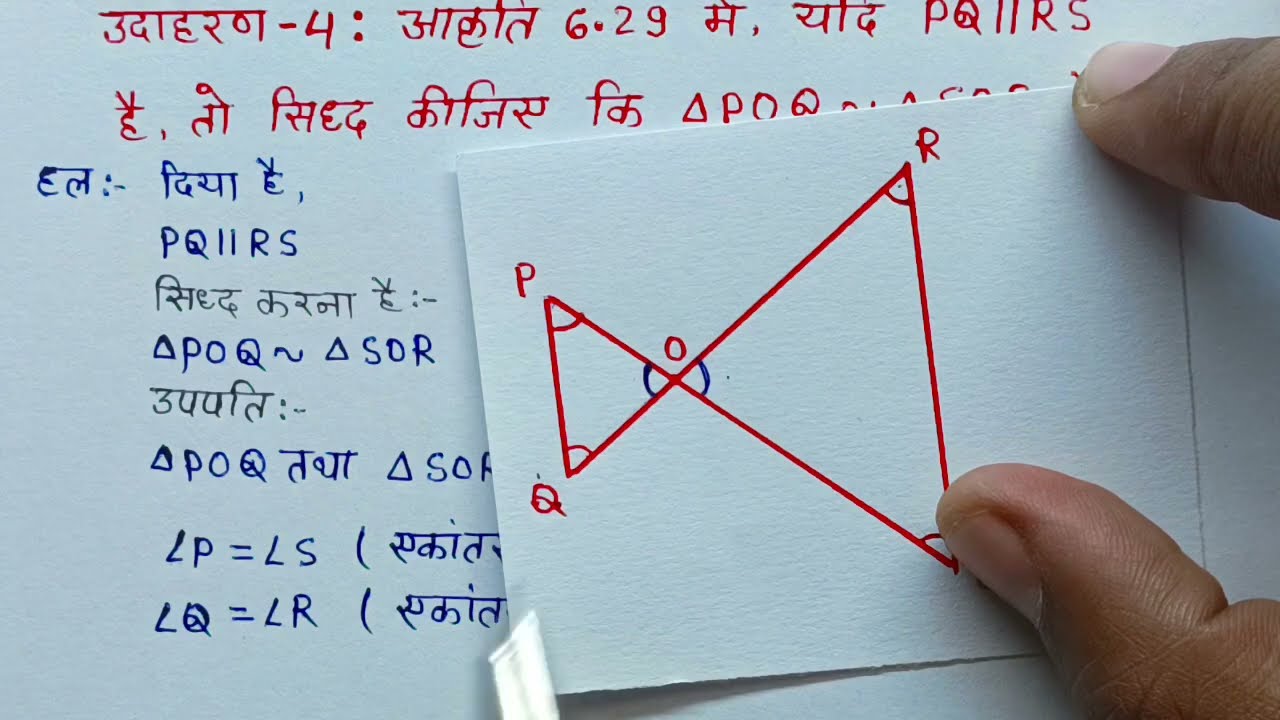 उदाहरण-4: आकृति 6.29 में, यदि PQ||RS
है, तो सिध्द कीजिए कि ΔPOQ ~
हल:- दिया है,
PQ||RS
सिध्द करना है:-
ΔPOQ ~ ΔSOR
उपपति:-
ΔPOQ तथा ΔSOR
∠P = ∠S (
∠Q = ∠R (
R
P
O
Q